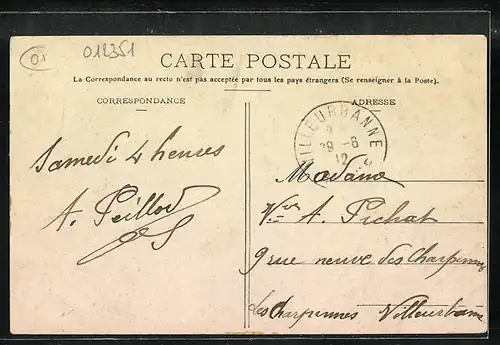 01
012351
CARTE POSTALE
La Correspondance au recto n'est pas acceptée par tous les pays étrangers (Se renseigner à la Poste).
CORRESPONDANCE
ADRESSE
VILLEURBANNE
29 - 6
12
Samedi 4 heures
A. Peillod
Madame
Vve A. Pichat
9 rue neuve des Charpennes
les Charpennes Villeurbanne